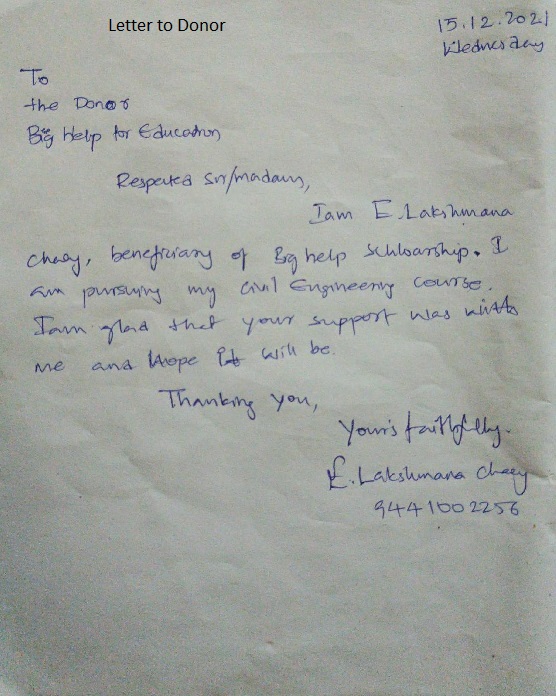 Letter to Donor
15.12.2021
Wednesday
To
the Donor
Big Help for Education
Respected Sir/madam,
Iam E.Lakshmana
chary, beneficiary of Big help Schloarship. I
am pursuing my Civil Engineering course.
Iam glad that your support was with
me and Hope it will be.
Thanking you,
Your's faithfully.
E.Lakshmana chary
9441002256